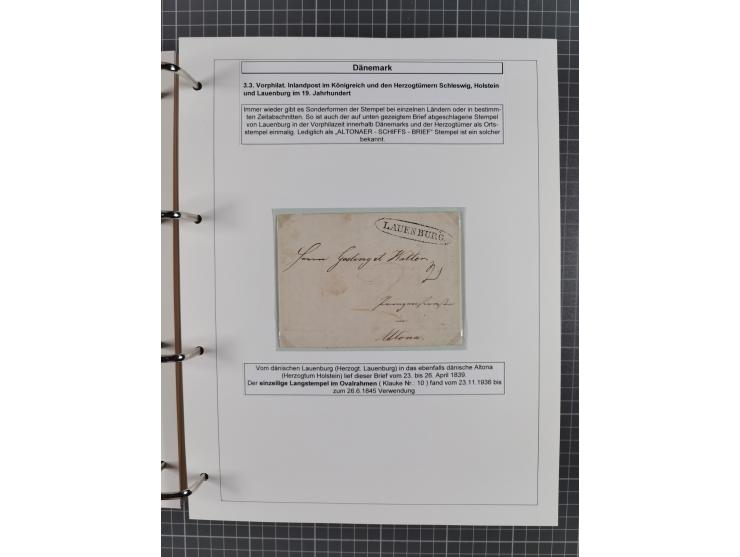 Dänemark
3.3. Vorphilat. Inlandpost im Königreich und den Herzogtümern Schleswig, Holstein
und Lauenburg im 19. Jahrhundert
Immer wieder gibt es Sonderformen der Stempel bei einzelnen Ländern oder in bestimm-
ten Zeitabschnitten. So ist auch der auf unten gezeigtem Brief abgeschlagene Stempel
von Lauenburg in der Vorphilazeit innerhalb Dänemarks und der Herzogtümer als Orts-
stempel einmalig. Lediglich als „ALTONAER - SCHIFFS - BRIEF“ Stempel ist ein solcher
bekannt.
LAUENBURG.
Herrn
Altona.
Vom dänischen Lauenburg (Herzogt. Lauenburg) in das ebenfalls dänische Altona
(Herzogtum Holstein) lief dieser Brief vom 23. bis 26. April 1839.
Der einzeilige Langstempel im Ovalrahmen ( Klauke Nr.: 10 ) fand vom 23.11.1936 bis
zum 26.6.1845 Verwendung